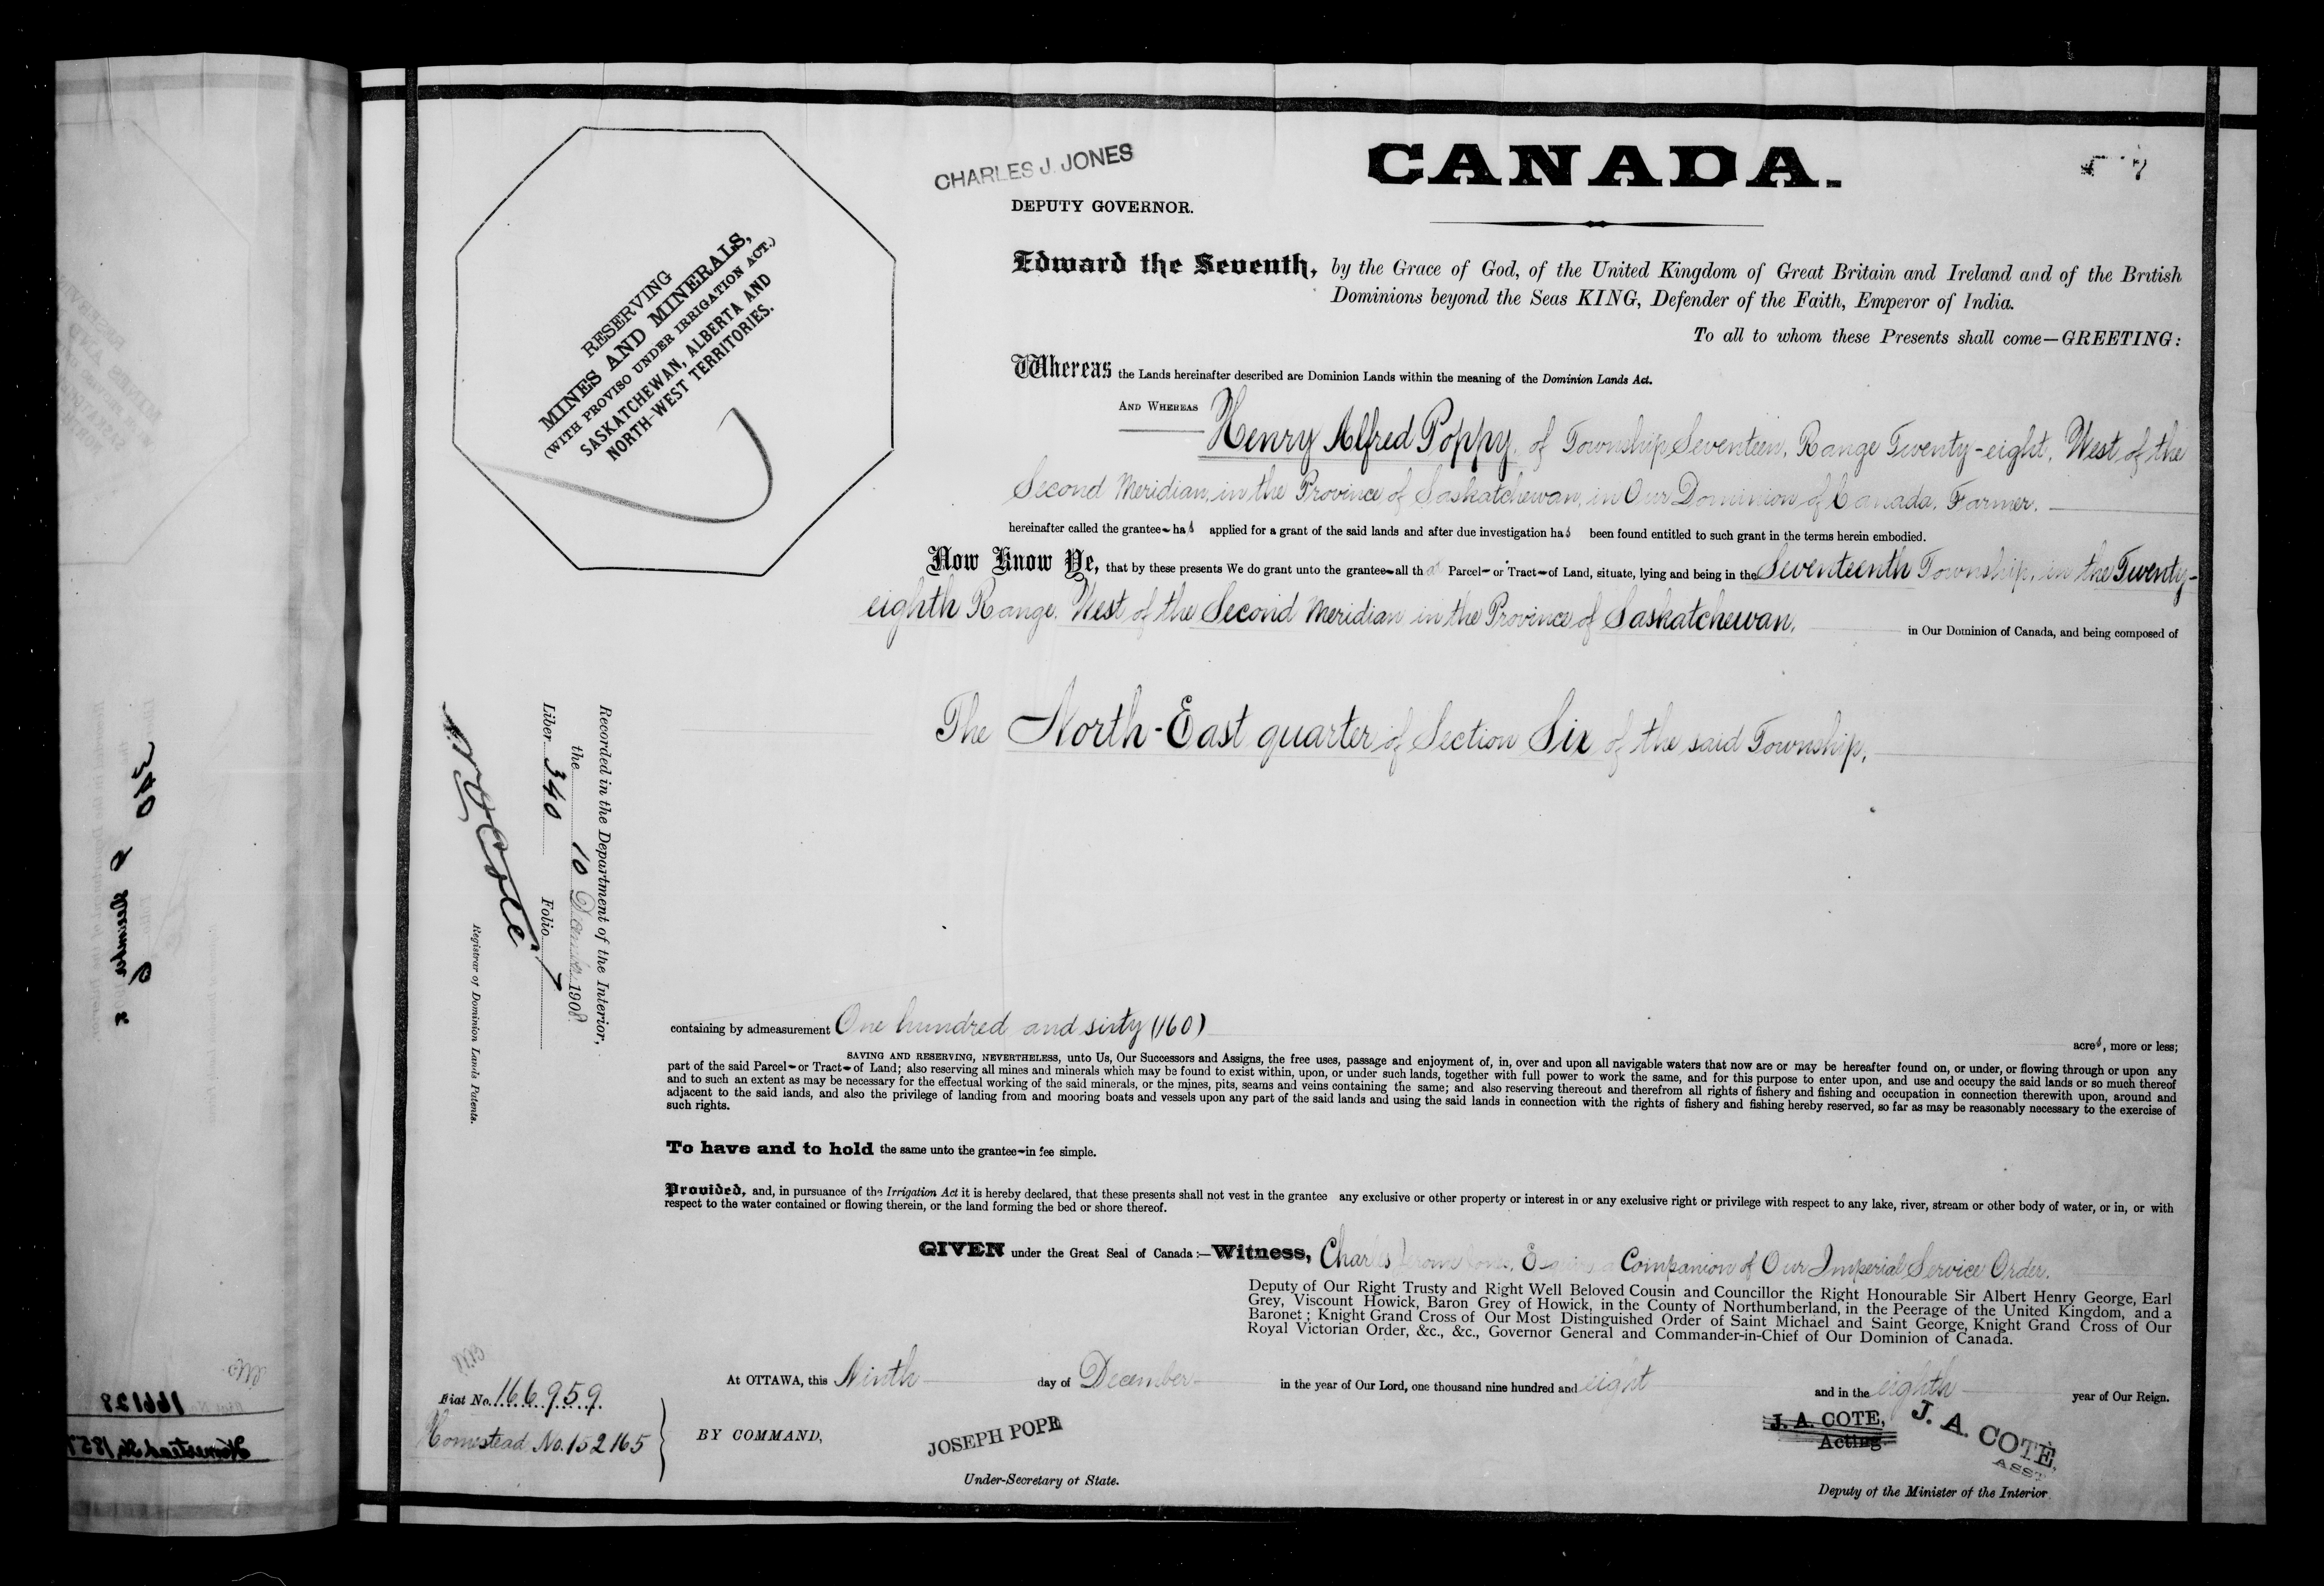 CHARLES J. JONES
DEPUTY GOVERNOR.
CANADA.
RESERVING
MINES AND MINERALS,
(WITH PROVISO UNDER IRRIGATION ACT.)
SASKATCHEWAN, ALBERTA AND
NORTH-WEST TERRITORIES.
Edward the Seventh, by the Grace of God, of the United Kingdom of Great Britain and Ireland and of the British
Dominions beyond the Seas KING, Defender of the Faith, Emperor of India.
To all to whom these Presents shall come—GREETING:
Whereas the Lands hereinafter described are Dominion Lands within the meaning of the Dominion Lands Act.
AND WHEREAS Henry Alfred Poppy, of Township Seventeen, Range Twenty-eight, West of the
Second Meridian, in the Province of Saskatchewan, in Our Dominion of Canada, Farmer.
hereinafter called the grantee has applied for a grant of the said lands and after due investigation has been found entitled to such grant in the terms herein embodied.
Now Know Ye, that by these presents We do grant unto the grantee all that Parcel or Tract of Land, situate, lying and being in the Seventeenth Township, in the Twenty-
eighth Range, West of the Second Meridian in the Province of Saskatchewan, in Our Dominion of Canada, and being composed of
The North-East quarter of Section Six of the said Township,
Recorded in the Department of the Interior,
the 10 December 1908.
Liber 340 Folio 7
N. O. Coté
Registrar of Dominion Lands Patents.
containing by admeasurement One hundred and sixty (160) acres, more or less;
SAVING AND RESERVING, NEVERTHELESS, unto Us, Our Successors and Assigns, the free uses, passage and enjoyment of, in, over and upon all navigable waters that now are or may be hereafter found on, or under, or flowing through or upon any
part of the said Parcel or Tract of Land; also reserving all mines and minerals which may be found to exist within, upon, or under such lands, together with full power to work the same, and for this purpose to enter upon, and use and occupy the said lands or so much thereof
and to such an extent as may be necessary for the effectual working of the said minerals, or the mines, pits, seams and veins containing the same; and also reserving thereout and therefrom all rights of fishery and fishing and occupation in connection therewith upon, around and
adjacent to the said lands, and also the privilege of landing from and mooring boats and vessels upon any part of the said lands and using the said lands in connection with the rights of fishery and fishing hereby reserved, so far as may be reasonably necessary to the exercise of
such rights.
To have and to hold the same unto the grantee in fee simple.
Provided, and, in pursuance of the Irrigation Act it is hereby declared, that these presents shall not vest in the grantee any exclusive or other property or interest in or any exclusive right or privilege with respect to any lake, river, stream or other body of water, or in, or with
respect to the water contained or flowing therein, or the land forming the bed or shore thereof.
GIVEN under the Great Seal of Canada:—Witness, Charles Jerome Jones, Esquire, a Companion of Our Imperial Service Order.
Deputy of Our Right Trusty and Right Well Beloved Cousin and Councillor the Right Honourable Sir Albert Henry George, Earl
Grey, Viscount Howick, Baron Grey of Howick, in the County of Northumberland, in the Peerage of the United Kingdom, and a
Baronet; Knight Grand Cross of Our Most Distinguished Order of Saint Michael and Saint George, Knight Grand Cross of Our
Royal Victorian Order, &c., &c., Governor General and Commander-in-Chief of Our Dominion of Canada.
At OTTAWA, this Ninth day of December in the year of Our Lord, one thousand nine hundred and eight and in the eighth year of Our Reign.
Fiat No. 166959
Homestead No. 152165
BY COMMAND,
JOSEPH POPE
Under-Secretary of State.
J. A. COTE,
Acting
J. A. COTÉ,
ASST.
Deputy of the Minister of the Interior
340
166128